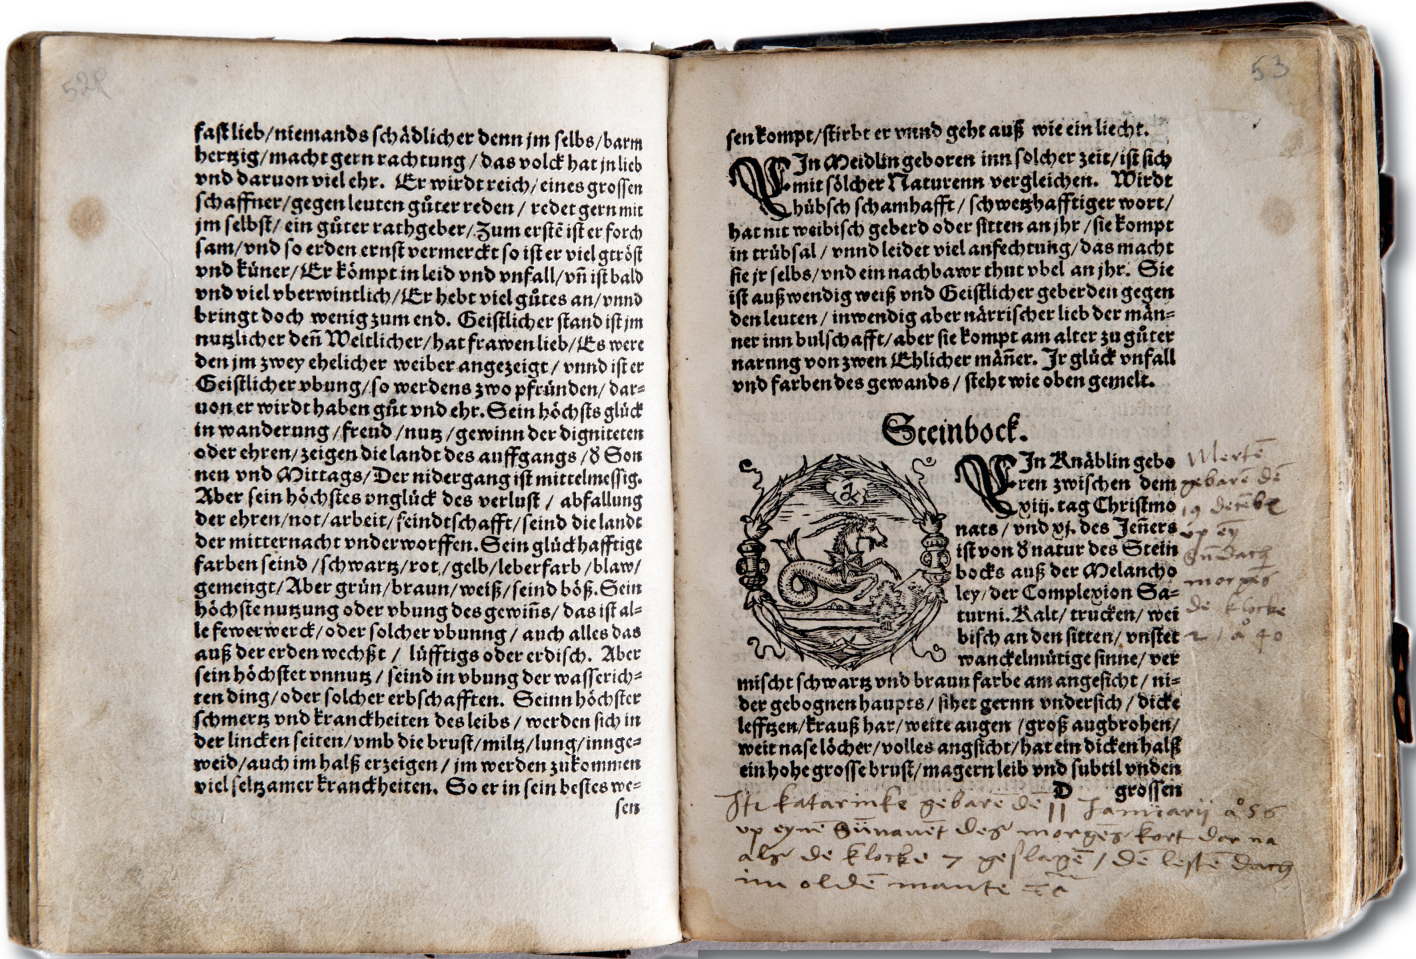 52
fast lieb/niemands schådlicher denn jm selbs/barm
hertzig/macht gern rachtung/das volck hat jn lieb
vnd daruon viel ehr. Er wirdt reich/eines grossen
schaffner/gegen leuten gůter reden/redet gern mit
jm selbst/ein gůter rathgeber/Zum erstē ist er forch
sam/vnd so er den ernst vermerckt so ist er viel gtröst
vnd küner/Er kömpt in leid vnd vnfall/vn̄ ist bald
vnd viel vberwintlich/Er hebt viel gůtes an/vnnd
bringt doch wenig zum end. Geistlicher stand ist jm
nutzlicher den̄ Weltlicher/hat frawen lieb/Es were
den jm zwey ehelicher weiber angezeigt/vnnd ist er
Geistlicher vbung/so werdens zwo pfründen/dar=
uon er wirdt haben gůt vnd ehr. Sein höchsts glück
in wanderung/freud/nutz/gewinn der digniteten
oder ehren/zeigen die landt des auffgangs/ð Son
nen vnd Mittags/Der nidergang ist mittelmessig.
Aber sein höchstes vnglück des verlust/abfallung
der ehren/not/arbeit/feindtschafft/seind die landt
der mitternacht vnderworffen. Sein glückhafftige
farben seind/schwartz/rot/gelb/leberfarb/blaw/
gemengt/Aber grün/braun/weiß/seind böß. Sein
höchste nutzung oder vbung des gewin̄s/das ist al=
le fewerwerck/oder solcher vbunng/auch alles das
auß der erden wechßt/lüfftigs oder erdisch. Aber
sein höchstet vnnutz/seind in vbung der wasserich=
ten ding/oder solcher erbschafften. Seinn höchster
schmertz vnd kranckheiten des leibs/werden sich in
der lincken seiten/vmb die brust/miltz/lung/innge=
weid/auch im halß erzeigen/jm werden zukommen
viel seltzamer kranckheiten. So er in sein bestes we=
sen
53
sen kompt/stirbt er vnnd geht auß wie ein liecht.
EIn Meidlin geboren inn solcher zeit/ist sich
mit sölcher Naturenn vergleichen. Wirdt
hübsch schamhafft/schwetzhafftiger wort/
hat nit weibisch geberd oder sitten an jhr/sie kompt
in trübsal/vnnd leidet viel anfechtung/das macht
sie jr selbs/vnd ein nachbawr thut vbel an jhr. Sie
ist außwendig weiß vnd Geistlicher geberden gegen
den leuten/inwendig aber närrischer lieb der män=
ner inn bulschafft/aber sie kompt am alter zu gůter
narung von zwen Ehlicher män̄er. Jr glück vnfall
vnd farben des gewands/steht wie oben gemelt.
Steinbock.
EIn Knåblin gebo
ren zwischen dem
xviij. tag Christmo
nats/vnd xj. des Jen̄ers
ist von ð natur des Stein
bocks auß der Melancho
ley/der Complexion Sa=
turni. Kalt/trucken/wei
bisch an den sitten/vnstet
wanckelmütige sinne/ver
mischt schwartz vnd braun farbe am angesicht/ni=
der gebognen haupts/sihet gernn vndersich/dicke
lefftzen/krauß har/weite augen/groß augbrohen/
weit naselöcher/volles angsicht/hat ein dicken halß
ein hohe grosse brust/magern leib vnd subtil vnden
D grossen
Mertē
gebarē dē
19 decēbe
vp ey
morgēs
de klocke
2 1 aº 40
Itē katarinke gebarē dē 11 Januarij aº 56
vp eynē Sūnavēt des morgēs kort dar na
als de klocke 7 geslagē/dē lestē dach
im oldē mante